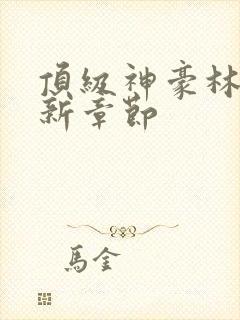 頂級神豪林
新章節
馬金